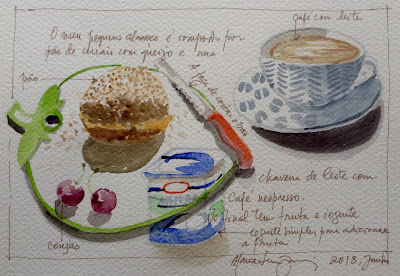 O meu pequeno almoço é composto por
pão de cereais com queijo e uma
pão
café com leite
chavena de leite com
Café nespresso.
No final tem fruta e iogurte
iogurte simples para adicionar
a fruta
cerejas
2018, junho